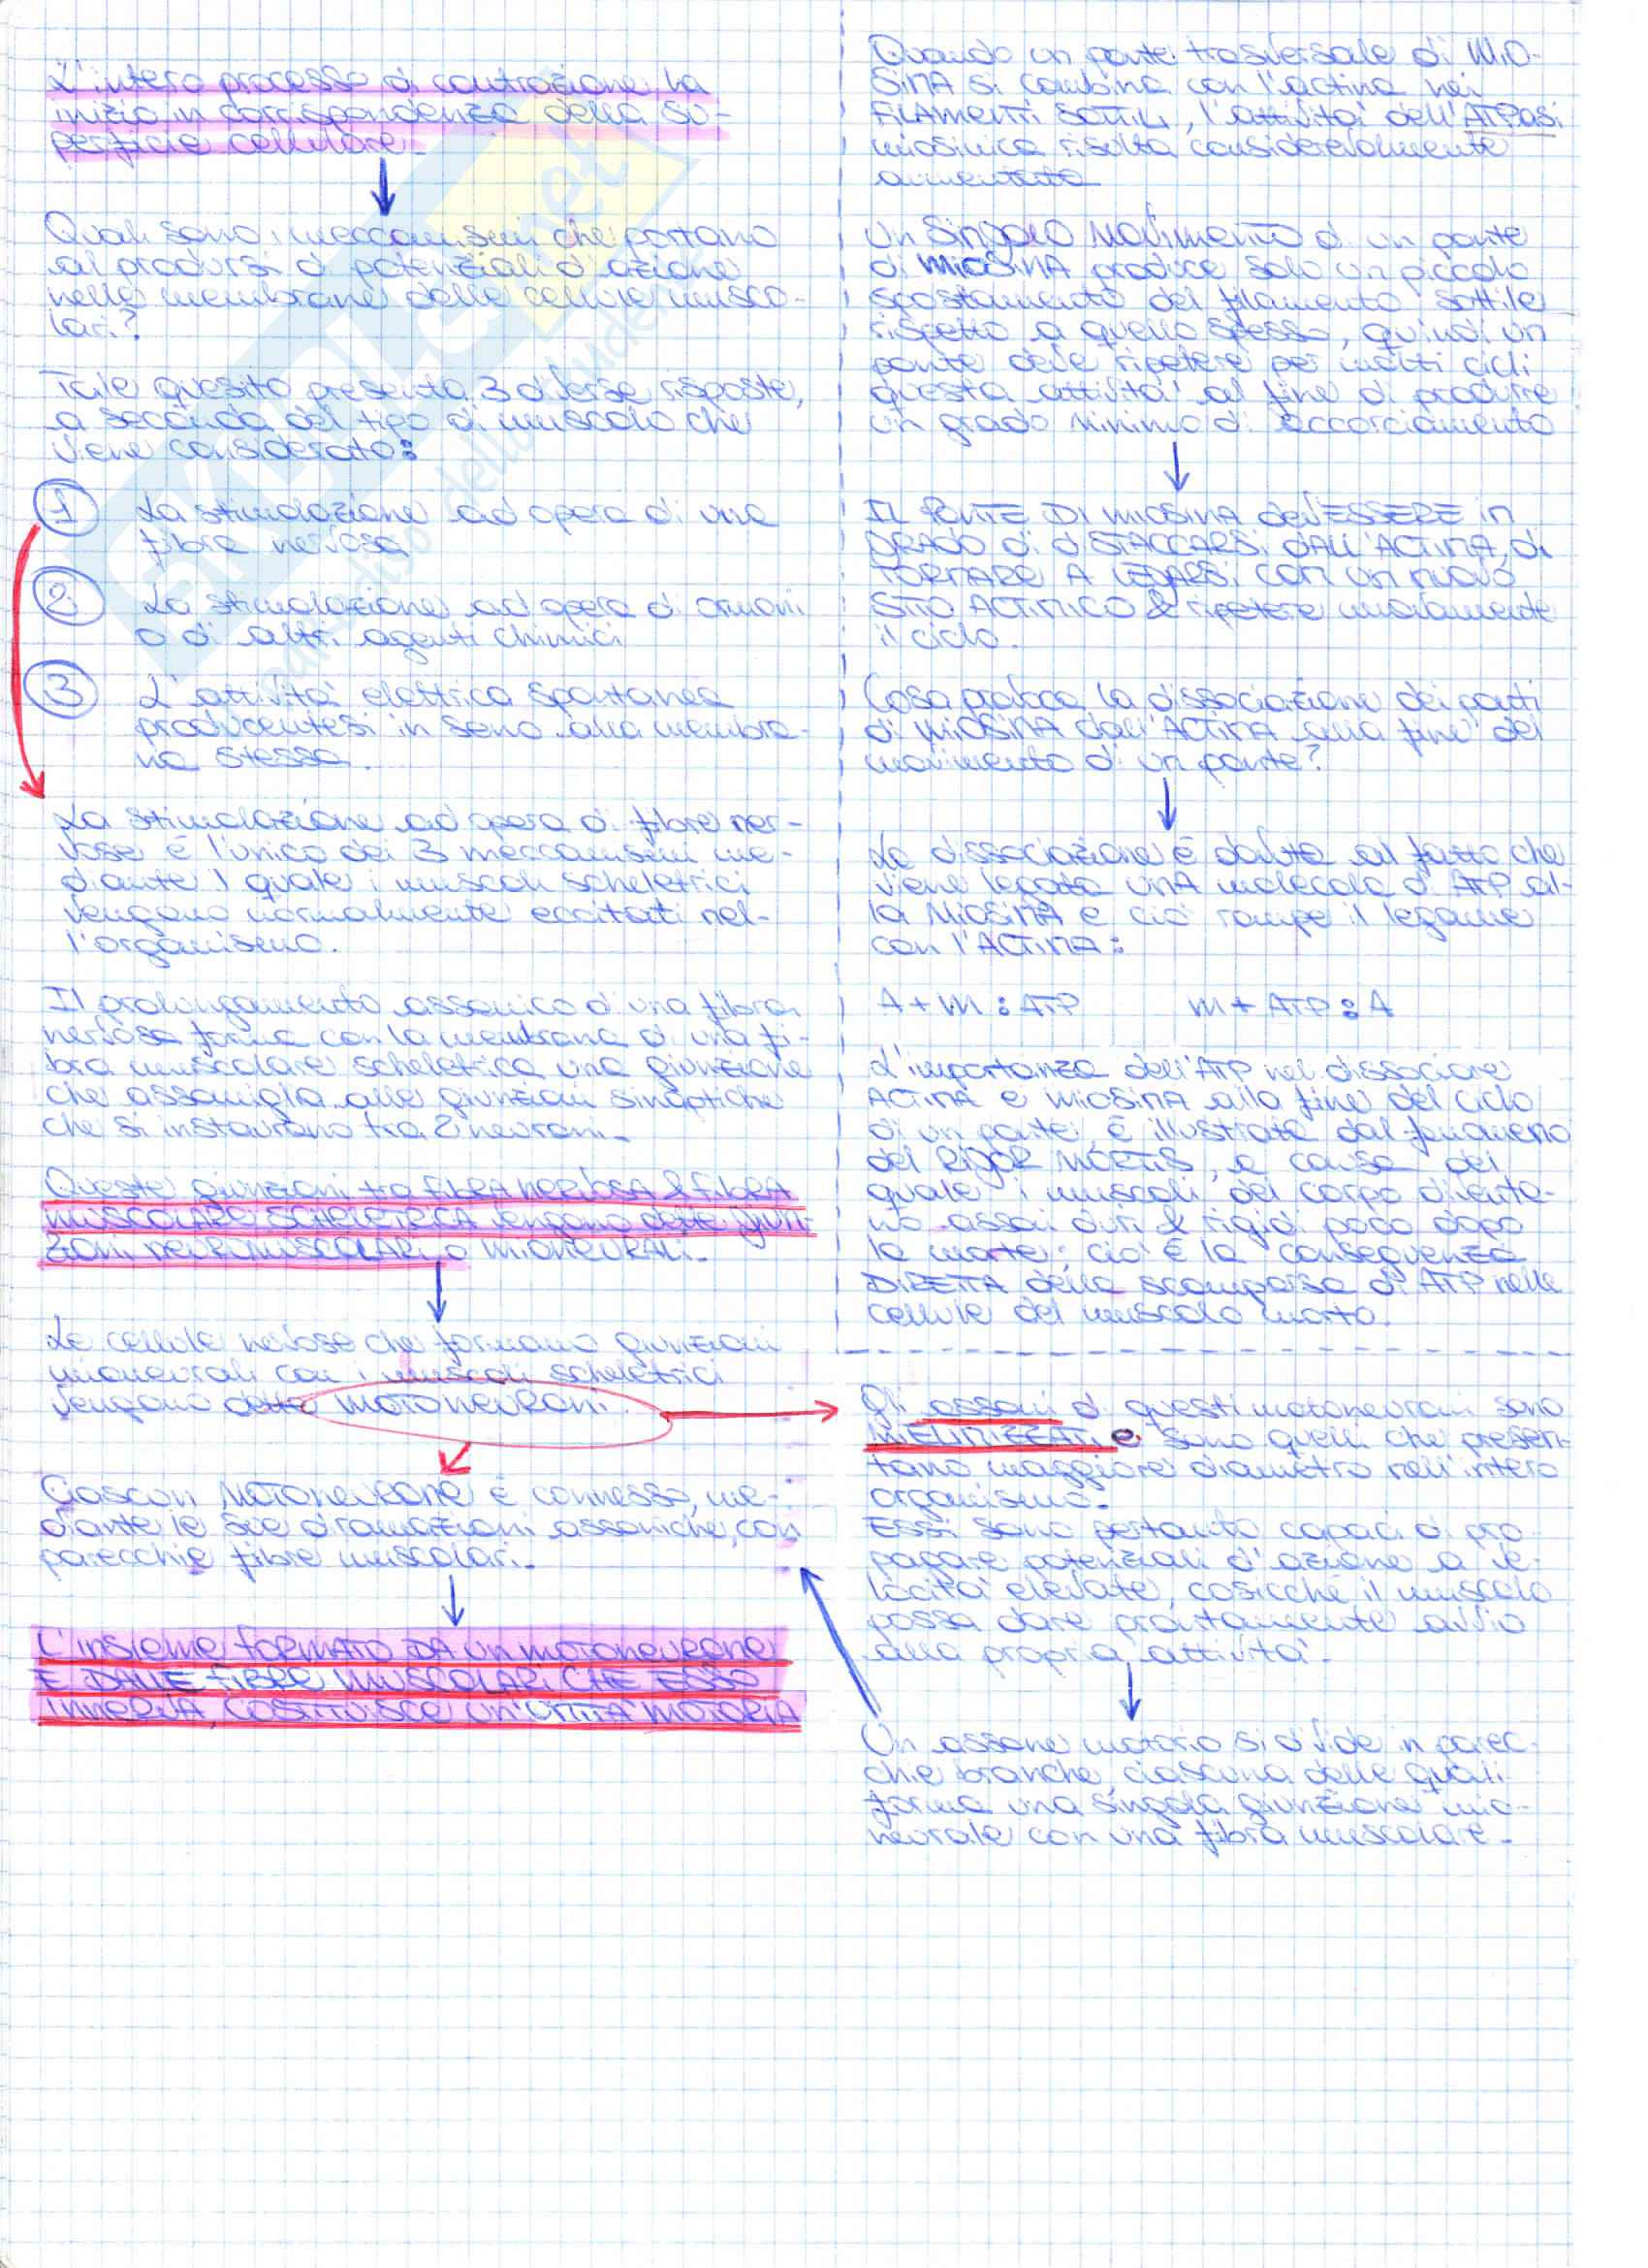 L'intero processo di contrazione ha
inizio in corrispondenza della su-
perficie cellulare.
Quali sono i meccanismi che portano
al prodursi di potenziali d'azione
nelle membrane delle cellule musco-
lari?
Tale quesito presenta 3 diverse risposte,
a seconda del tipo di muscolo che
viene considerato:
1 La stimolazione ad opera di una
fibra nervosa
2 La stimolazione ad opera di ormoni
o di altri agenti chimici
3 L'attività elettrica spontanea
producentesi in seno alla membra-
na stessa.
La stimolazione ad opera di fibre ner-
vose è l'unico dei 3 meccanismi me-
diante il quale i muscoli scheletrici
vengono normalmente eccitati nel-
l'organismo.
Il prolungamento assonico di una fibra
nervosa forma con la membrana di una fi-
bra muscolare scheletrica una giunzione
che assomiglia alle giunzioni sinaptiche
che si instaurano tra 2 neuroni.
Queste giunzioni tra FIBRA NERVOSA & FIBRA
MUSCOLARE SCHELETRICA vengono dette giun-
zioni NEUROMUSCOLARI o MIONEURALI.
Le cellule nervose che formano giunzioni
mioneurali con i muscoli scheletrici
vengono dette MOTONEURONI.
Ciascun MOTONEURONE è connesso, me-
diante le sue diramazioni assoniche, con
parecchie fibre muscolari.
L'insieme FORMATO DA un MOTONEURONE
E DALLE FIBRE MUSCOLARI CHE ESSO
INNERVA, COSTITUISCE UN'UNITÀ MOTORIA
Quando un ponte trasversale di MIO-
SINA si combina con l'actina nei
FILAMENTI SOTTILI, l'attività dell'ATPasi
miosinica risulta considerevolmente
aumentata
Un SINGOLO MOVIMENTO di un ponte
di MIOSINA produce solo un piccolo
spostamento del filamento sottile
rispetto a quello spesso, quindi un
ponte deve ripetere per molti cicli
questa attività al fine di produrre
un grado minimo di accorciamento
IL PONTE DI MIOSINA dev'ESSERE in
GRADO di DISTACCARSI DALL'ACTINA, di
TORNARE A LEGARSI con un nuovo
SITO ACTINICO & ripetere nuovamente
il ciclo.
Cosa provoca la dissociazione dei ponti
di MIOSINA dall'ACTINA alla fine del
movimento di un ponte?
La dissociazione è dovuta al fatto che
viene legata una molecola di ATP al-
la MIOSINA e ciò rompe il legame
con l'ACTINA:
A + M : ATP M + ATP : A
L'importanza dell'ATP nel dissociare
ACTINA e MIOSINA alla fine del ciclo
di un ponte, è illustrata dal fenomeno
del RIGOR MORTIS, a causa del
quale i muscoli del corpo diventa-
no assai duri & rigidi poco dopo
la morte; ciò è la conseguenza
DIRETTA della scomparsa di ATP nelle
cellule del muscolo morto.
Gli assoni di questi motoneuroni sono
MIELINIZZATI e sono quelli che presen-
tano maggiore diametro nell'intero
organismo.
Essi sono pertanto capaci di pro-
pagare potenziali d'azione a ve-
locità elevate, cosicché il muscolo
possa dare prontamente avvio
alla propria attività.
Un assone motorio si divide in parec-
chie branche, ciascuna delle quali
forma una singola giunzione mio-
neurale con una fibra muscolare.